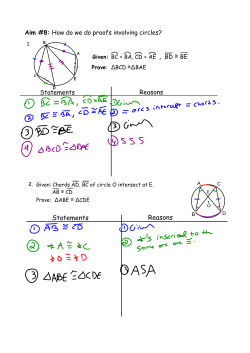 Aim #8: How do we do proofs involving circles?
1.
Given: BC = BA, CD = AE, BD ≅ BE
Prove: △BCD ≅ △BAE
Statements Reasons
① BC ≅ BA, CD ≅ AE ① Given
② BC ≅ BA, CD ≅ AE ② = arcs intercept = chords.
③ BD ≅ BE ③ Given
④ △BCD ≅ △BAE ④ SSS
2. Given: Chords AD, BC of circle O intersect at E.
AB ≅ CD
Prove: △ABE ≅ △CDE
A C
E
O
B D
Statements Reasons
① AB ≅ CD ① Given
② ∡A ≅ ∡C ② ∡'s inscribed to the
∡B ≅ ∡D same arc are ≅.
③ △ABE ≅ △CDE ③ ASA